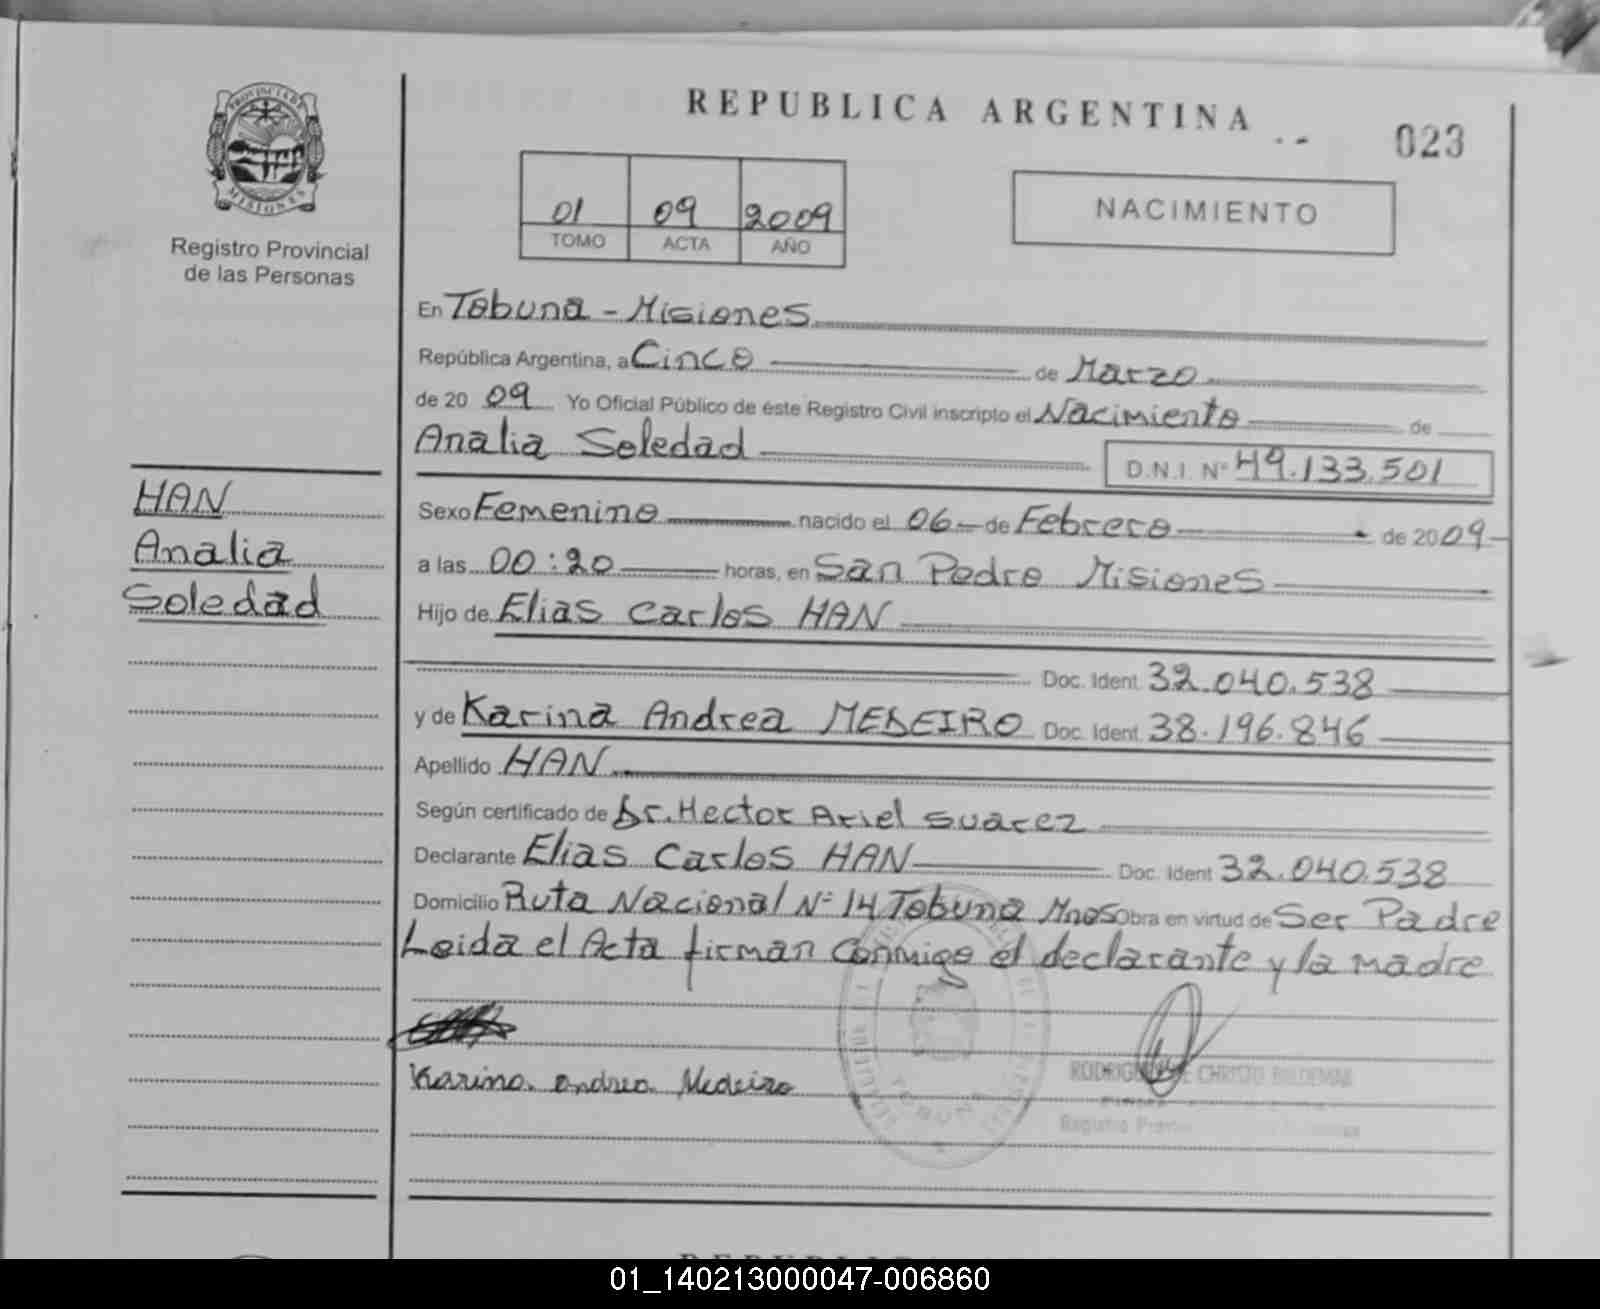 REPUBLICA ARGENTINA
023
PROVINCIA DE
MISIONES
Registro Provincial
de las Personas
01 09 2009
TOMO ACTA AÑO
NACIMIENTO
En Tobuna - Misiones
República Argentina, a Cinco de Marzo
de 20 09 Yo Oficial Público de éste Registro Civil inscripto el Nacimiento de
Analia Soledad D.N.I. Nº 49.133.501
HAN
Analia
Soledad
Sexo Femenino nacido el 06 de Febrero de 2009
a las 00:20 horas, en San Pedro Misiones
Hijo de Elias Carlos HAN
Doc. Ident. 32.040.538
y de Karina Andrea MEDEIRO Doc. Ident. 38.196.846
Apellido HAN
Según certificado de Dr. Hector Ariel Suarez
Declarante Elias Carlos HAN Doc. Ident 32.040.538
Domicilio Ruta Nacional Nº 14 Tobuna Mnes Obra en virtud de Ser Padre
Leida el Acta firman conmigo el declarante y la madre
Karina Andrea Medeiro
TOBUNA
CHRISTO BALDEMAR
Registro
01_140213000047-006860